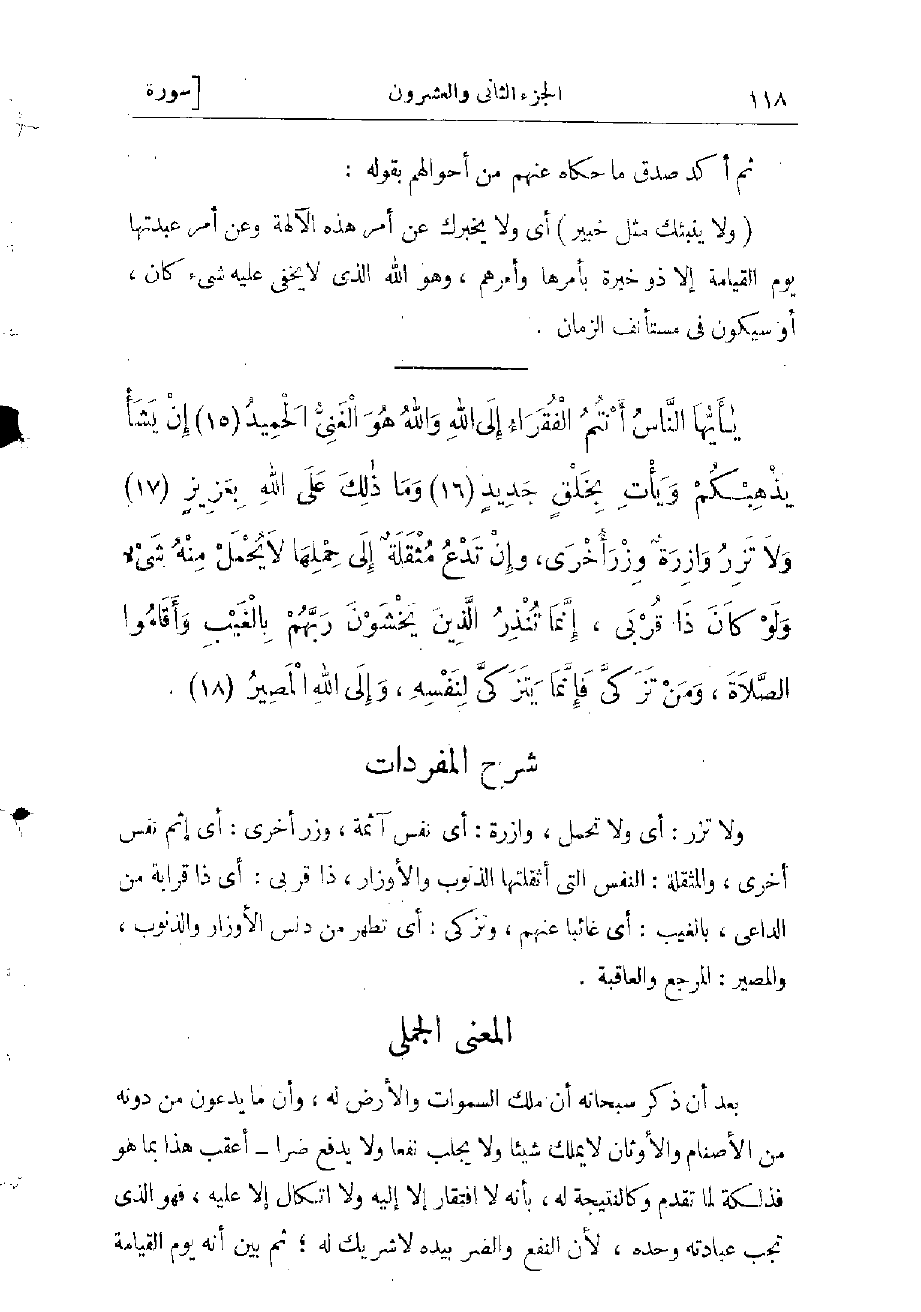 ١١٨ الجزء الثانى والعشرون [سورة
ثم أكد صدق ما حكاه عنهم من أحوالهم بقوله :
( ولا ينبئك مثل خبير ) أى ولا يخبرك عن أمر هذه الآلهة وعن أمر عبدتها
يوم القيامة إلا ذو خبرة بأمرها وأمرهم ، وهو الله الذى لا يخفى عليه شىء كان ،
أو سيكون فى مستأنف الزمان .
يٰأَيُّهَا النَّاسُ أَنْتُمُ الْفُقَرَاءِ إِلَى اللهِ وَاللهُ هُوَ الْغَنِىُّ الْحَمِيدُ (١٥) إِنْ يَشَأْ
يُذْهِبْكُمْ وَيَأْتِ بِخَلْقٍ جَدِيدٍ (١٦) وَمَا ذٰلِكَ عَلَى اللهِ بِعَزِيزٍ (١٧)
وَلَا تَزِرُ وَازِرَةٌ وِزْرَ أُخْرَى، وإِنْ تَدْعُ مُثْقَلَةٌ إِلَى حِمْلِهَا لَا يُحْمَلْ مِنْهُ شَىْءٌ
وَلَوْ كَانَ ذَا قُرْبَى ، إِنَّمَا تُنْذِرُ الَّذِينَ يَخْشَوْنَ رَبَّهُمْ بِالْغَيْبِ وَأَقَامُوا
الصَّلَاةَ ، وَمَنْ تَزَكَّىٰ فَإِنَّمَا يَتَزَكَّىٰ لِنَفْسِهِ ، وَإِلَى اللهِ الْمَصِيرُ (١٨) .
شرح المفردات
ولا تزر : أى ولا تحمل ، وازرة : أى نفس آثمة ، وزر أخرى : أى إثم نفس
أخرى ، والمثقلة : النفس التى أثقلتها الذنوب والأوزار ، ذا قربى : أى ذا قرابة من
الداعى ، بالغيب : أى غائبا عنهم ، وتزكى : أى تطهر من دنس الأوزار والذنوب ،
والمصير : المرجع والعاقبة .
المعنى الجملى
بعد أن ذكر سبحانه أن ملك السموات والأرض له ، وأن ما يدعون من دونه
من الأصنام والأوثان لا يملك شيئا ولا يجلب نفعا ولا يدفع ضرا ــ أعقب هذا بما هو
فذلكة لما تقدم وكالنتيجة له ، بأنه لا افتقار إلا إليه ولا اتكال إلا عليه ، فهو الذى
تجب عبادته وحده ، لأن النفع والضر بيده لا شريك له ؛ ثم بين أنه يوم القيامة